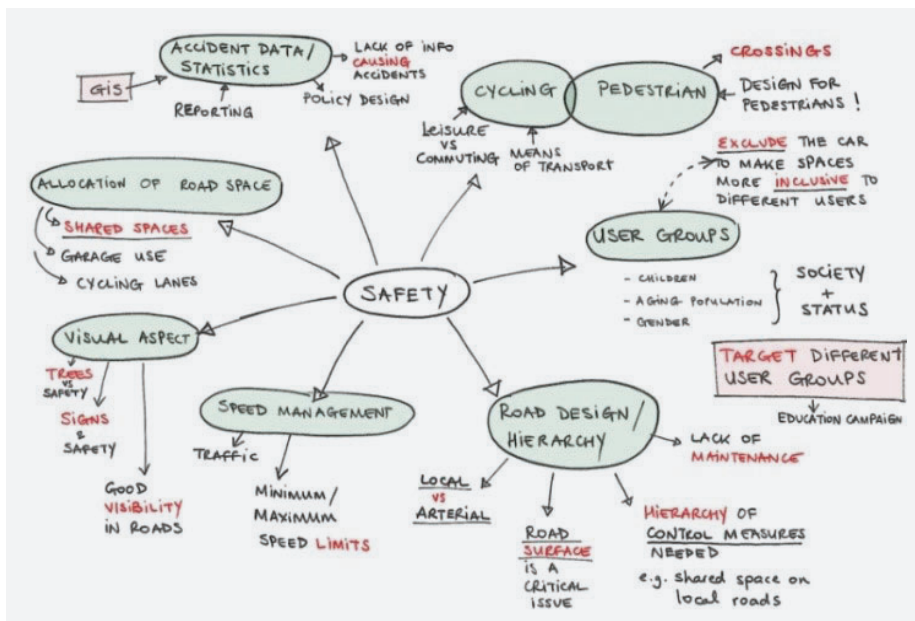 ACCIDENT DATA/
STATISTICS
GIS
REPORTING
LACK OF INFO
CAUSING
ACCIDENTS
POLICY DESIGN
CYCLING
PEDESTRIAN
CROSSINGS
DESIGN FOR
PEDESTRIANS!
LEISURE
VS
COMMUTING
MEANS
OF TRANSPORT
EXCLUDE THE CAR
TO MAKE SPACES
MORE INCLUSIVE TO
DIFFERENT USERS
ALLOCATION OF ROAD SPACE
SHARED SPACES
GARAGE USE
CYCLING LANES
USER GROUPS
- CHILDREN
- AGING POPULATION
- GENDER
SOCIETY
+
STATUS
SAFETY
VISUAL ASPECT
TREES
VS
SAFETY
SIGNS
&
SAFETY
GOOD
VISIBILITY
IN ROADS
SPEED MANAGEMENT
TRAFFIC
MINIMUM/
MAXIMUM
SPEED LIMITS
ROAD DESIGN/
HIERARCHY
LACK OF
MAINTENANCE
LOCAL
VS
ARTERIAL
ROAD
SURFACE
IS A
CRITICAL
ISSUE
HIERARCHY OF
CONTROL MEASURES
NEEDED
e.g. shared space on
local roads
TARGET DIFFERENT
USER GROUPS
EDUCATION CAMPAIGN